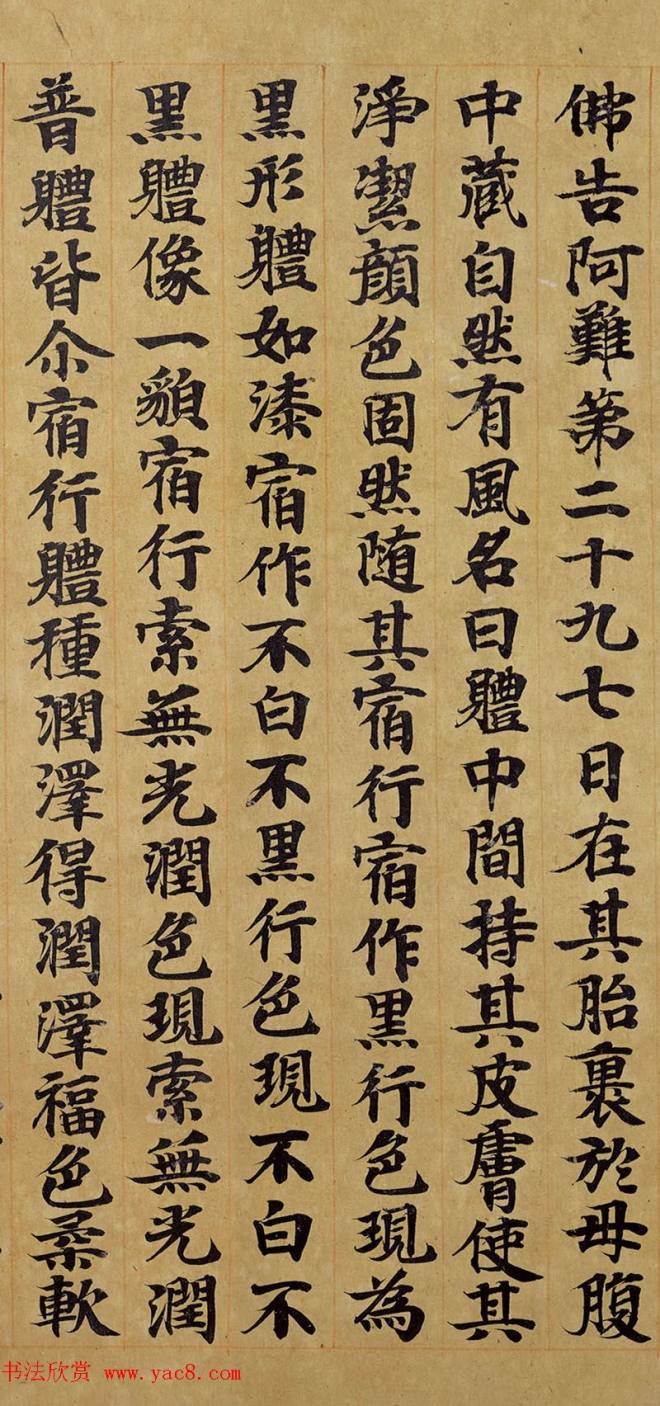 佛告阿難第二十九七日在其胎裹於母腹
中藏自然有風名曰體中間持其皮膚使其
淨潔顏色固然随其宿行宿作黑行色現為
黑形體如漆宿作不白不黑行色現不白不
黑體像一貌宿行索無光潤色現索無光潤
普體皆尒宿行體種潤澤得潤澤福色柔軟
书法欣赏 www.yac8.com